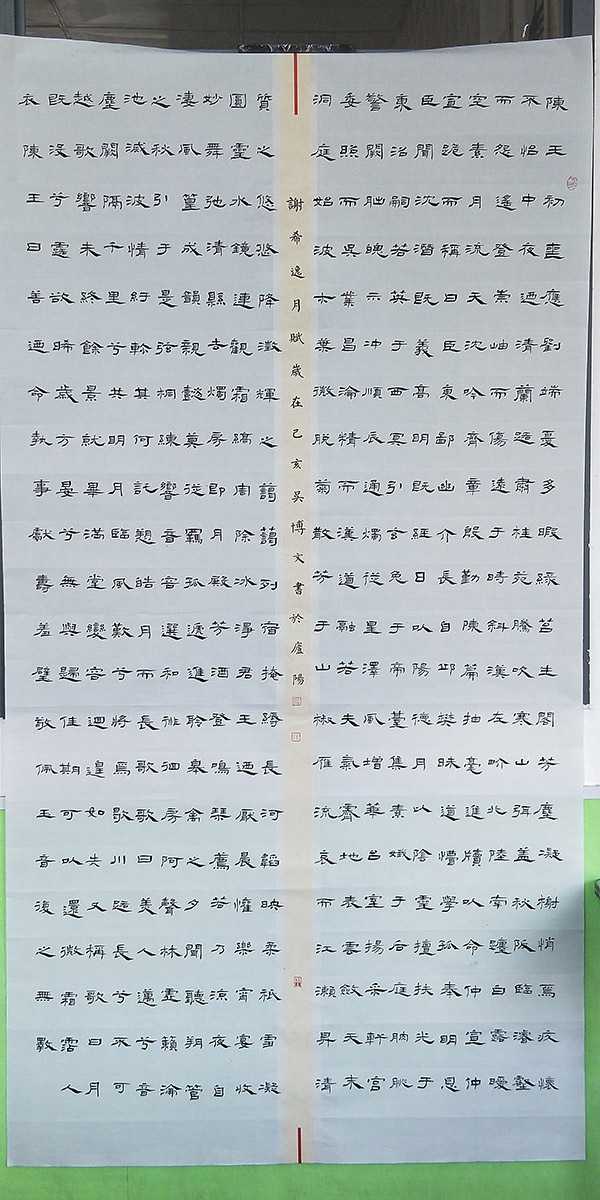 陳王初喪應劉端憂多暇綠苔生閣芳塵凝榭悄焉疚懷
不怡中夜迺清蘭路肅桂苑騰吹寒山弭盖秋阪臨濬壑
而怨遙登崇岫而傷遠于時斜漢左界北陸南躔白露曖
空素月流天沈吟齊章殷勤陳篇抽毫進牘以命仲宣仲
宣跪而稱曰臣東鄙幽介長自邱樊昧道懵學孤奉明恩
臣聞沈潛既義高明既經日以陽德月以陰靈擅扶光于
東沼嗣若英于西冥引玄兔于帝臺集素娥于后庭朒朓
警闕朏魄示冲順辰通燭從星澤風增華台室揚采軒宮
委照而吳業昌淪精而漢道融若夫氣霽地表雲斂天末
洞庭始波木葉微脫菊散芳于山椒雁流哀而江瀨昇清
謝希逸月賦歲在己亥吳博文書於廬陽
質之悠悠降澂輝之藹藹列宿掩縟長河韜映柔祇雪凝
圓靈水鏡連觀霜縞周除冰淨君王迺厭晨懽樂宵宴收
妙舞弛清縣去燭房即月殿芳酒登鳴琴薦若乃涼夜自
淒風篁成韻親懿莫從羈孤遞進聆皋禽之夕聞聽朔管
之秋引于是弦桐練響音容選和徘徊房阿聲林虛籟淪
池滅波情紆軫其何託愬皓月而長歌歌曰美人邁兮音
塵闕隔千里兮共明月臨風歎兮將焉歇川路長兮不可
越歌響未終餘景就畢滿堂變容迴遑如失又稱歌曰月
既沒兮露欲晞歲方晏兮無與歸佳期可以還微霜霑人
衣陳王曰善迺命執事獻壽羞璧敬佩玉音復之無斁